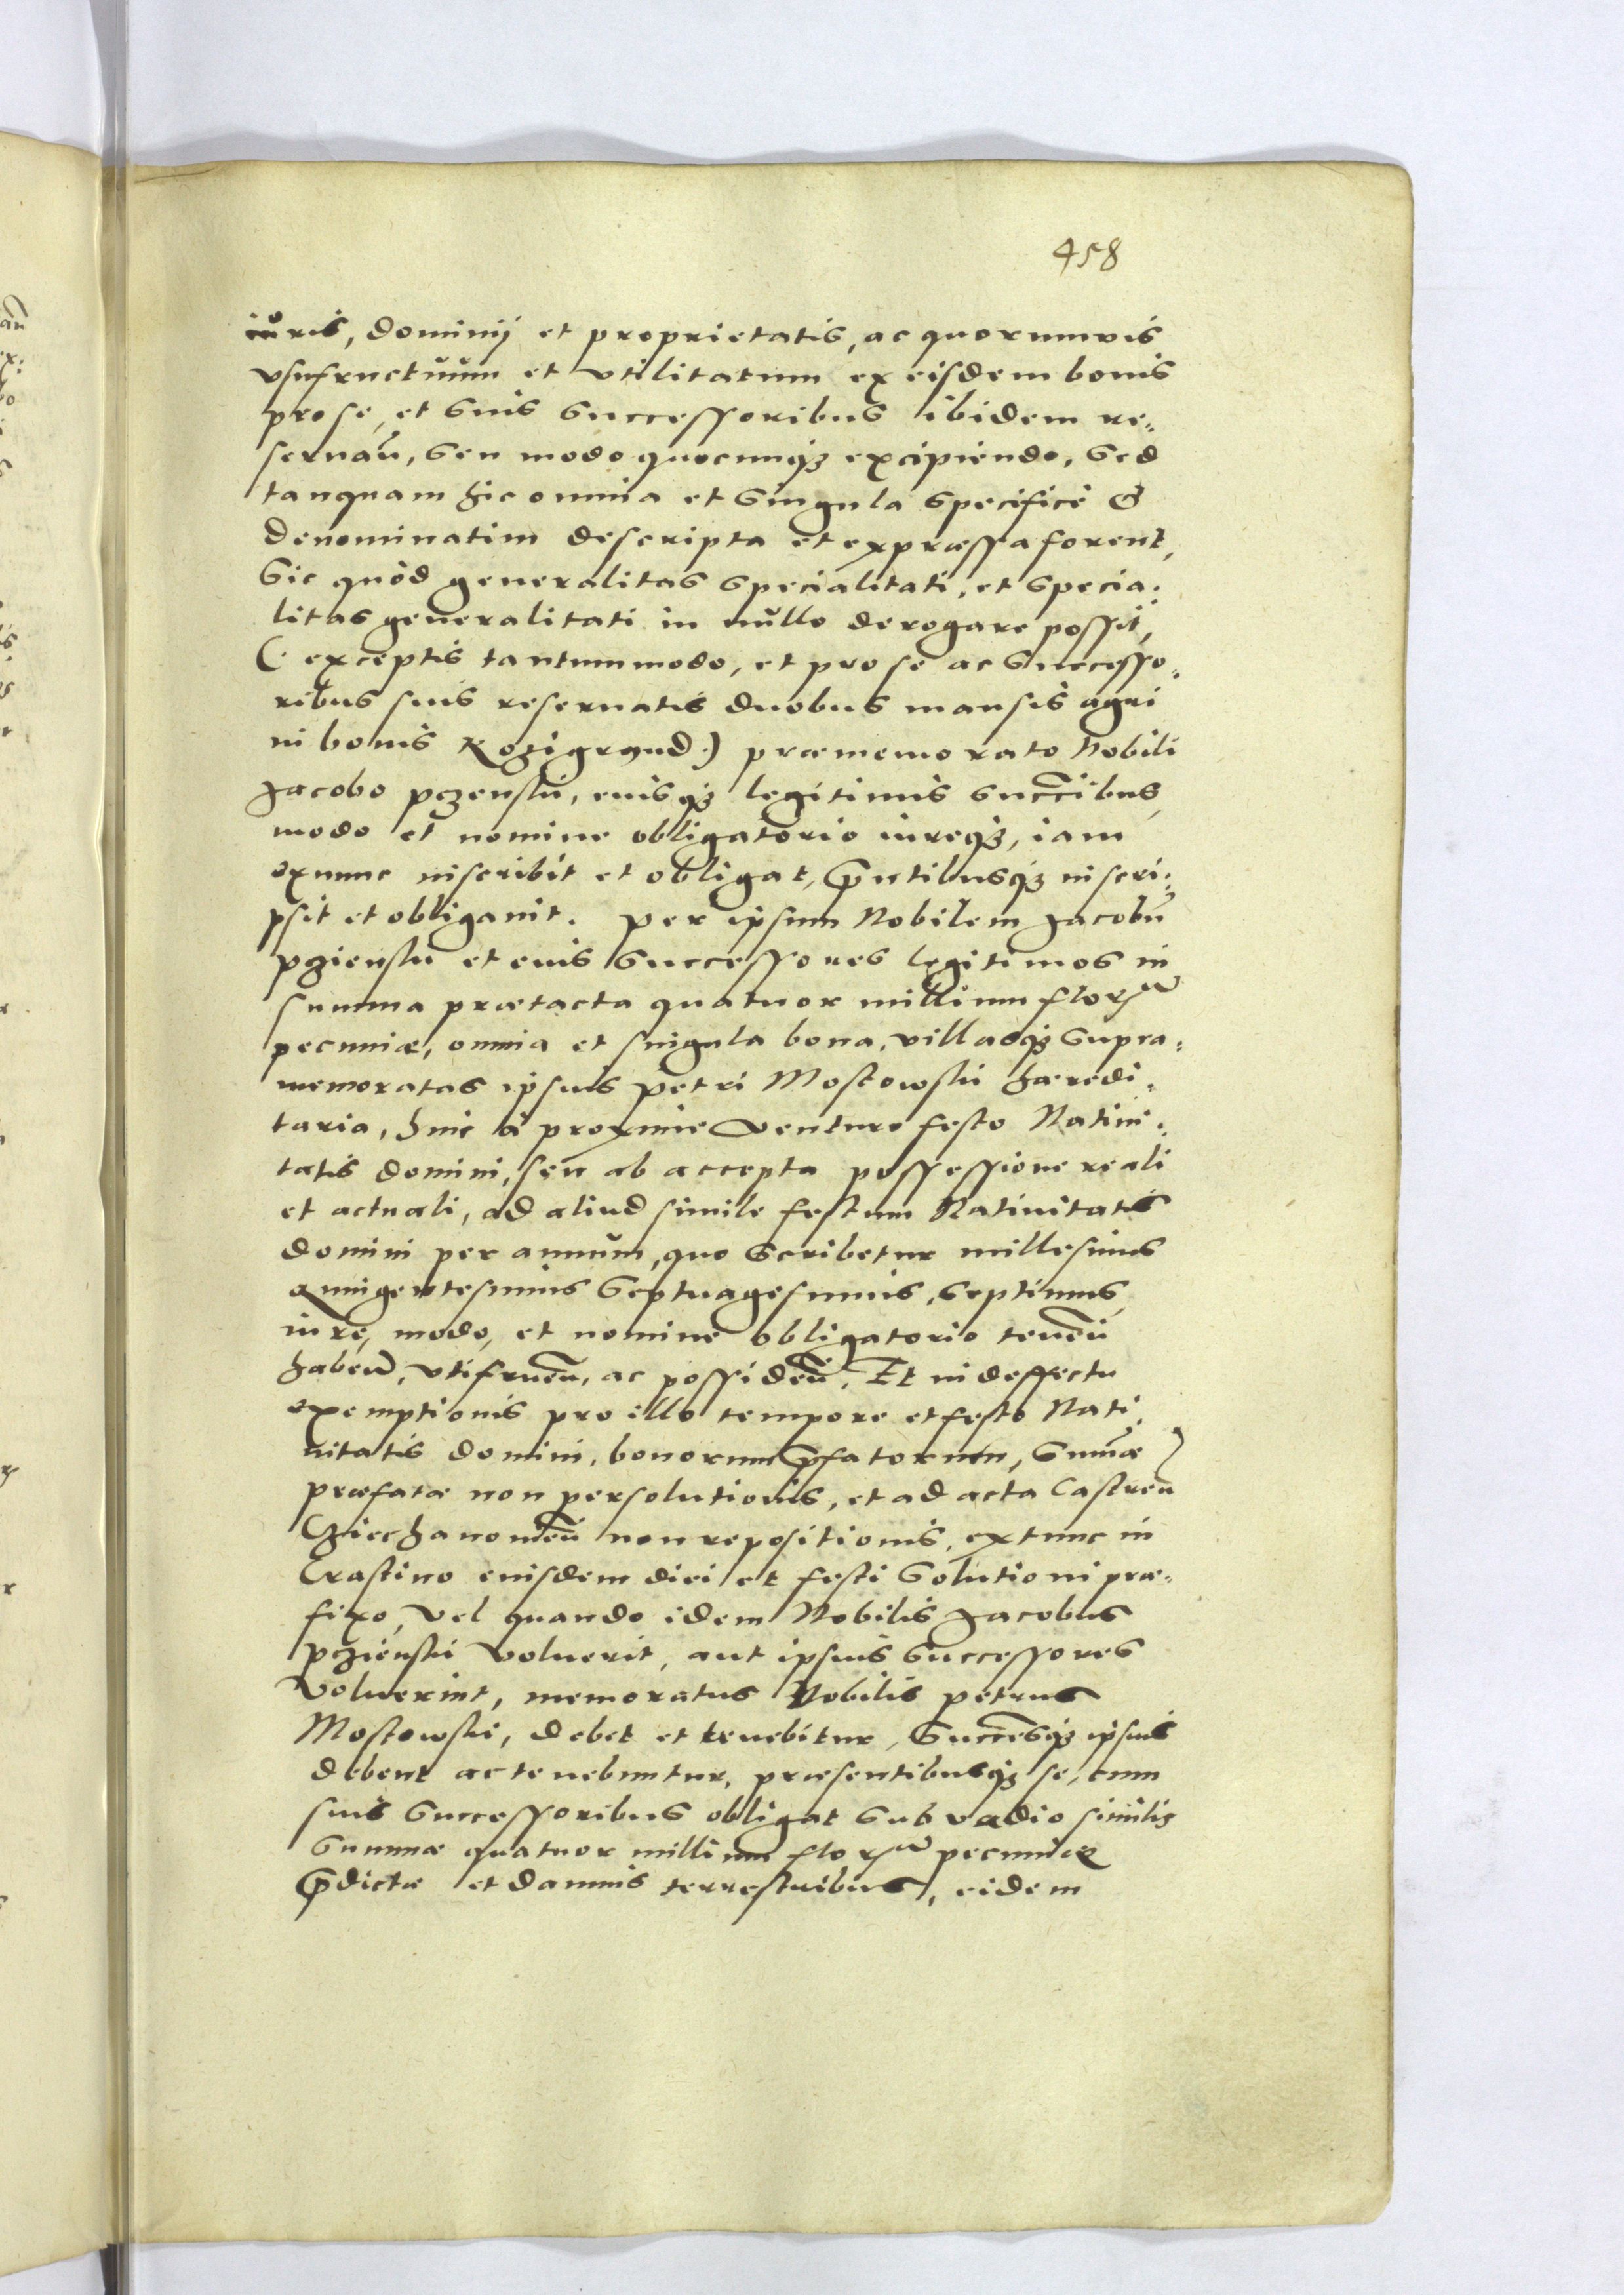 458
iuris, dominij et proprietatis, ac quorumvis
vsufructuum et vtilitatum ex eisdem bonis
pro se, et suis successoribus ibidem re„
seruań, seu modo quocunqȝ excipiendo, sed
tanquam hic omnia et singula specificè &
denominatim descripta et expressa forent,
Sic quòd generalitas specialitati, et specia:
litas generalitati in nullo derogare possit,
(: exceptis tantummodo, et pro se ac successo„
ribus suis reseruatis duobus mansis agri
in bonis Kozigrąnd:) præmemorato Nobili
Jacobo pczenski, eiusqȝ legitimis succībus,
modo et nomine obligatorio iureqȝ, iam
exnunc inscribit et obligat, p̄ntibusqȝ inscri:
psit et obligauit. per ipsum Nobilem Jacobū
pczienski et eius successores legitimos in
summa prætacta quatuor millium florꝝ
pecuniæ, omnia et singula bona, villasqȝ supra:
memoratas ipsius petri Mostowski hæredi:
taria, hinc à proxime venturo festo Natiui:
tatis domini, seu ab accepta possessione reali
et actuali, ad aliud simile festum Natiuitatis
domini per annum, quo scribetur millesimus
quingentesimus septuagesimus, septimus,
iure, modo, et nomine obligatorio teneń
habeń, vtifrueń, ac possideń. Et in deffectu
exemptionis pro illo tempore et festo Nati:
uitatis domini, bonorum p̄fatorum, sum̄æ
præfatæ non persolutionis, et ad acta Castreń
Cziechanowień non repositionis, extunc in
Crastino eiusdem diei et festi solutioni præ„
fixo, vel quando idem Nobilis Jacobus
pczienski voluerit, aut ipsius successores
voluerint, memoratus Nobilis petrus
Mostowski, debet et tenebitur, succēsqȝ ipsius
debent ac tenebuntur, præsentibusqȝ se, cum
suis successoribus obligat sub vadio similis
summæ quatuor millium florꝝ pecuniæ
p̄dictæ et damnis terrestribus, eidem